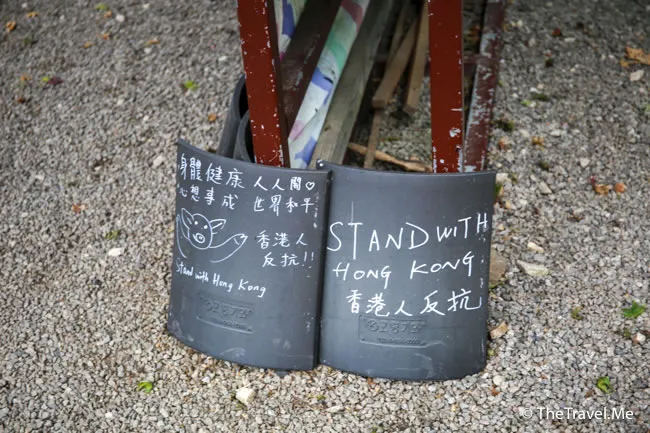 身體健康
心想事成
人人開♡
世界和平
香港人
反抗!!
Stand with Hong Kong
STAND WITH
HONG KONG
香港人反抗
© TheTravel.Me